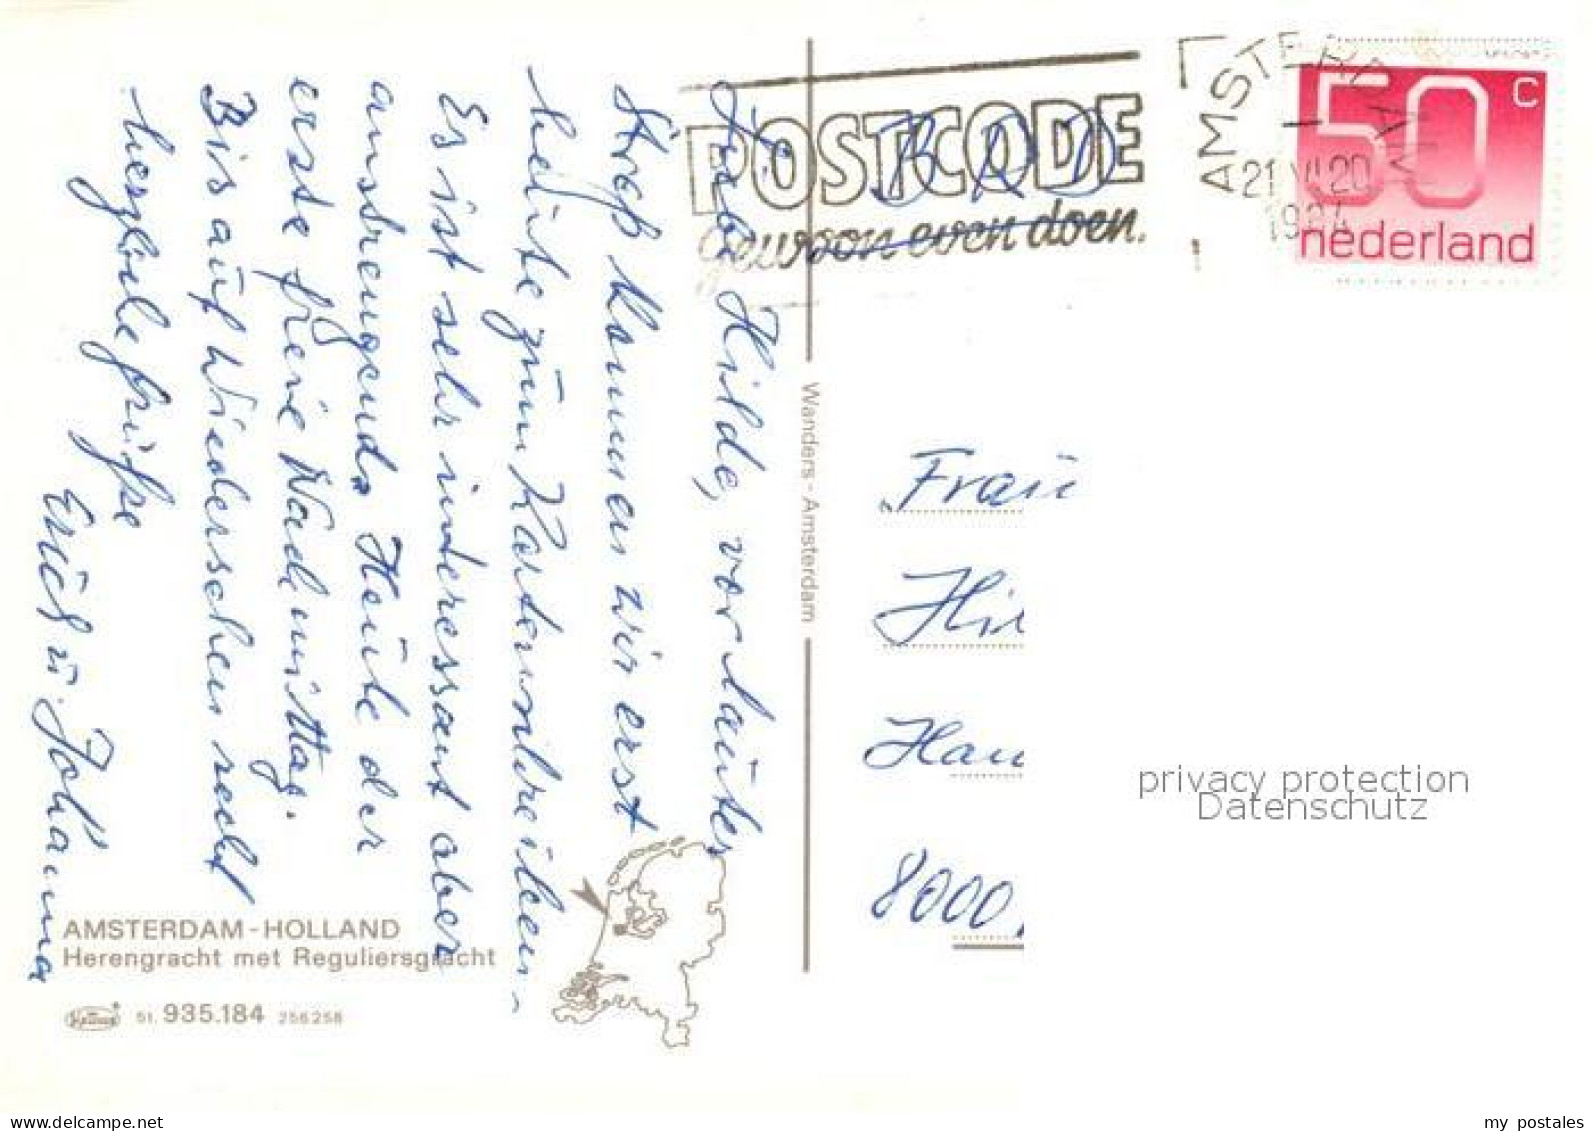 Liebe Hilde, vor lauter
Streß kommen wir erst
heute zum Kartenschreiben.
Es ist sehr interessant aber
anstrengend. Heute der
erste freie Nachmittag.
Bis auf Wiedersehen recht
herzliche Grüße
Erich u. Johanna
AMSTERDAM-HOLLAND
Herengracht met Reguliersgracht
51. 935.184 256258
Wanders - Amsterdam
POSTCODE
gewoon even doen.
BRD
AMSTERDAM
21 VI 20
1984
50 C
nederland
Frau
Hil
Han
8000
privacy protection
Datenschutz
www.delcampe.net
my_postales